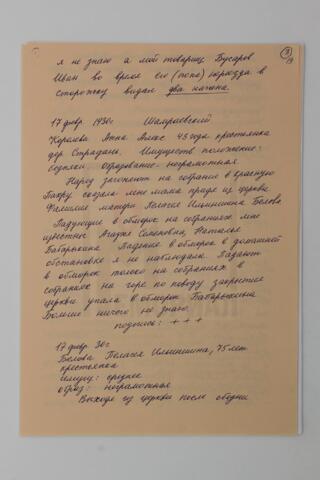 ③
19
я не знаю а мой товарищ Бусаров
Иван во время его (попа) приезда в
сторожку видал два нагана.
17 февр. 1930г Шамраевский
Королева Анна Алекс 43 года крестьянка
дер. Страдань. Имуществ положение:
бедняк. Образование: неграмотная.
Народ загоняют на собрание в красную
Пахру сказала мне мама придя из церкви.
Фамилие матери Пелагея Ильинишна Белова.
Падующие в обморок на собраниях мне
известны Агафья Семеновна, Наталья
Бабарыкина. Падение в обморок в домашней
обстановке я не наблюдала. Падают
в обморок только на собраниях в
собраниях на горе по поводу закрытие
церкви упала в обморок Бабарыкина
Больше ничего не знаю.
подпись: + + +
17 февр. 30г.
Белова Пелагея Ильинишна, 75 лет
крестьянка
имущ: среднее
образ: неграмотная
Выходя из церкви после обедни